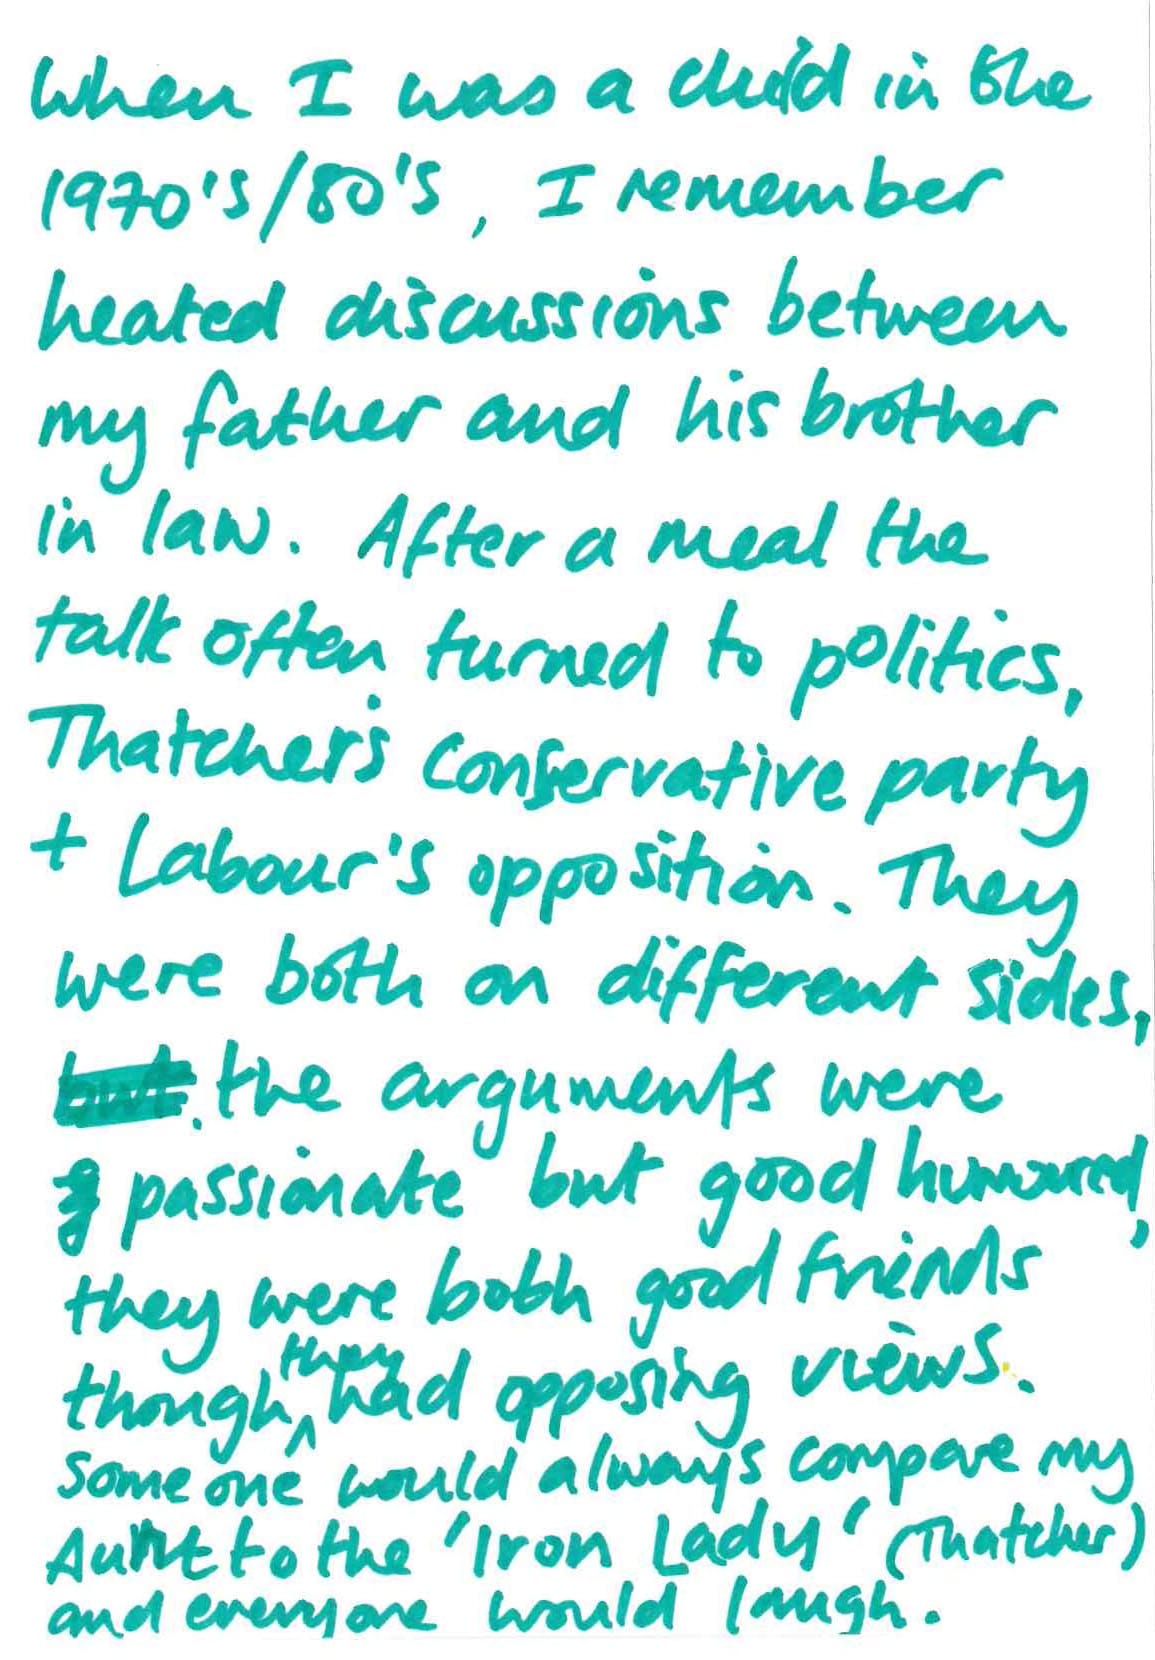 When I was a child in the
1970's/80's, I remember
heated discussions between
my father and his brother
in law. After a meal the
talk often turned to politics,
Thatcher's Conservative party
+ Labour's opposition. They
were both on different sides,
but. the arguments were
passionate but good humoured,
they were both good friends
though, they had opposing views.
Someone would always compare my
Aunt to the 'Iron Lady' (Thatcher)
and everyone would laugh.